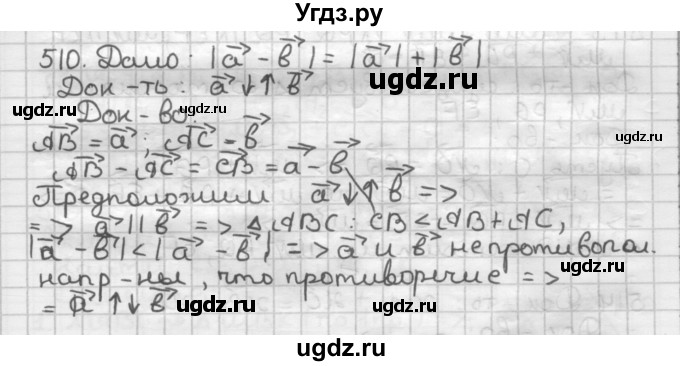 Угдз.ру
510. Дано: |a⃗ - b⃗| = |a⃗| + |b⃗|
ugdz.ru
Док-ть: a⃗ ↓↑ b⃗
ugdz.ru
ugdz.ru
Док-во:
AB⃗ = a⃗; AC⃗ = b⃗
ugdz.ru
AB⃗ - AC⃗ = CB⃗ = a⃗ - b⃗
Предположим a⃗ ↓↑ b⃗ =>
=> a⃗ || b⃗ => △ABC: CB < AB + AC,
|a⃗ - b⃗| < |a⃗ - b⃗| => a⃗ и b⃗ не противопол.
ugdz.ru
ugdz.ru
напр-ны, что противоречие =>
= a⃗ ↑↓ b⃗
ugdz.ru
ugdz.ru
ugdz.ru